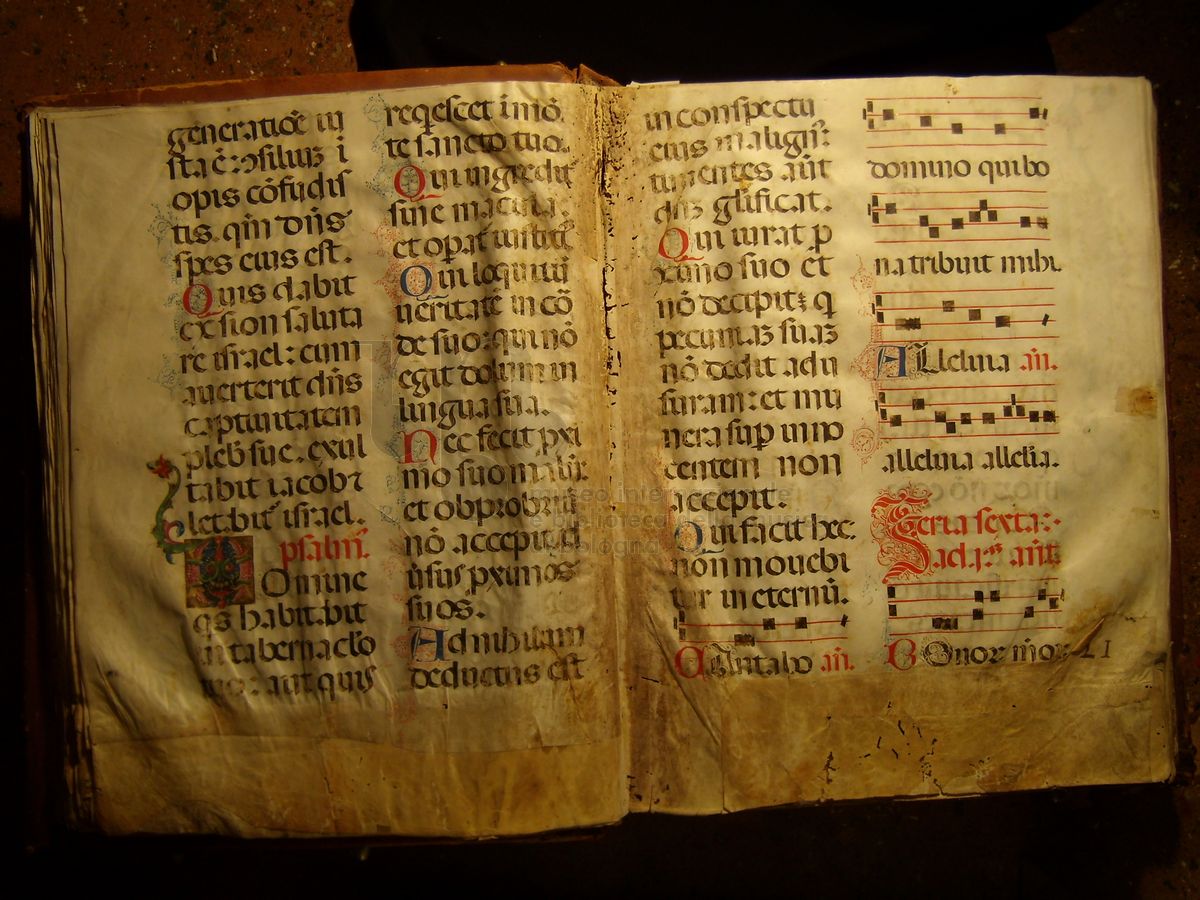 generatiōe iu
sta ē: ꝯsiliuꝫ i
opis cōfudis
tis. qm̄ dn̄s
spes eius est.
Quis dabit
ex sion saluta
re israel: cum
auerterit dn̄s
captiuitatem
pleb̄ sue. exul
tabit iacob ⁊
let̄bit̄ israel.
psalm̄.
Domine
qs̄ habitabit
in tabernaclo
tuo: aut quis
reqescet i mō.
te sancto tuo.
Qui ingredit̄
sine macula.
et opat̄ iustiti
Qui loquitur
ueritatē in cō
de suo: qui nō
egit dolum in
lingua sua.
Nec fecit pxi
mo suo malū:
et obprobriū
nō accepit ad
ūsus pximos
suos.
Ad nihilum
deductus est
in conspectu
eius malign̄:
timentes aūt
dn̄ꝫ glificat.
Qui iurat p
ximo suo et
nō decipit: q
pecuniaꝫ suaꝫ
nō dedit ad u
suram: et mu
nera sup inno
centem non
accepit.
Qui facit hec.
non mouebi
tur in eternū.
Cantabo an̄.
domino qui bo
na tribuit mihi.
Alleluia an̄.
alleluia allelia.
Feria sexta:
Bonor̄ meor̄